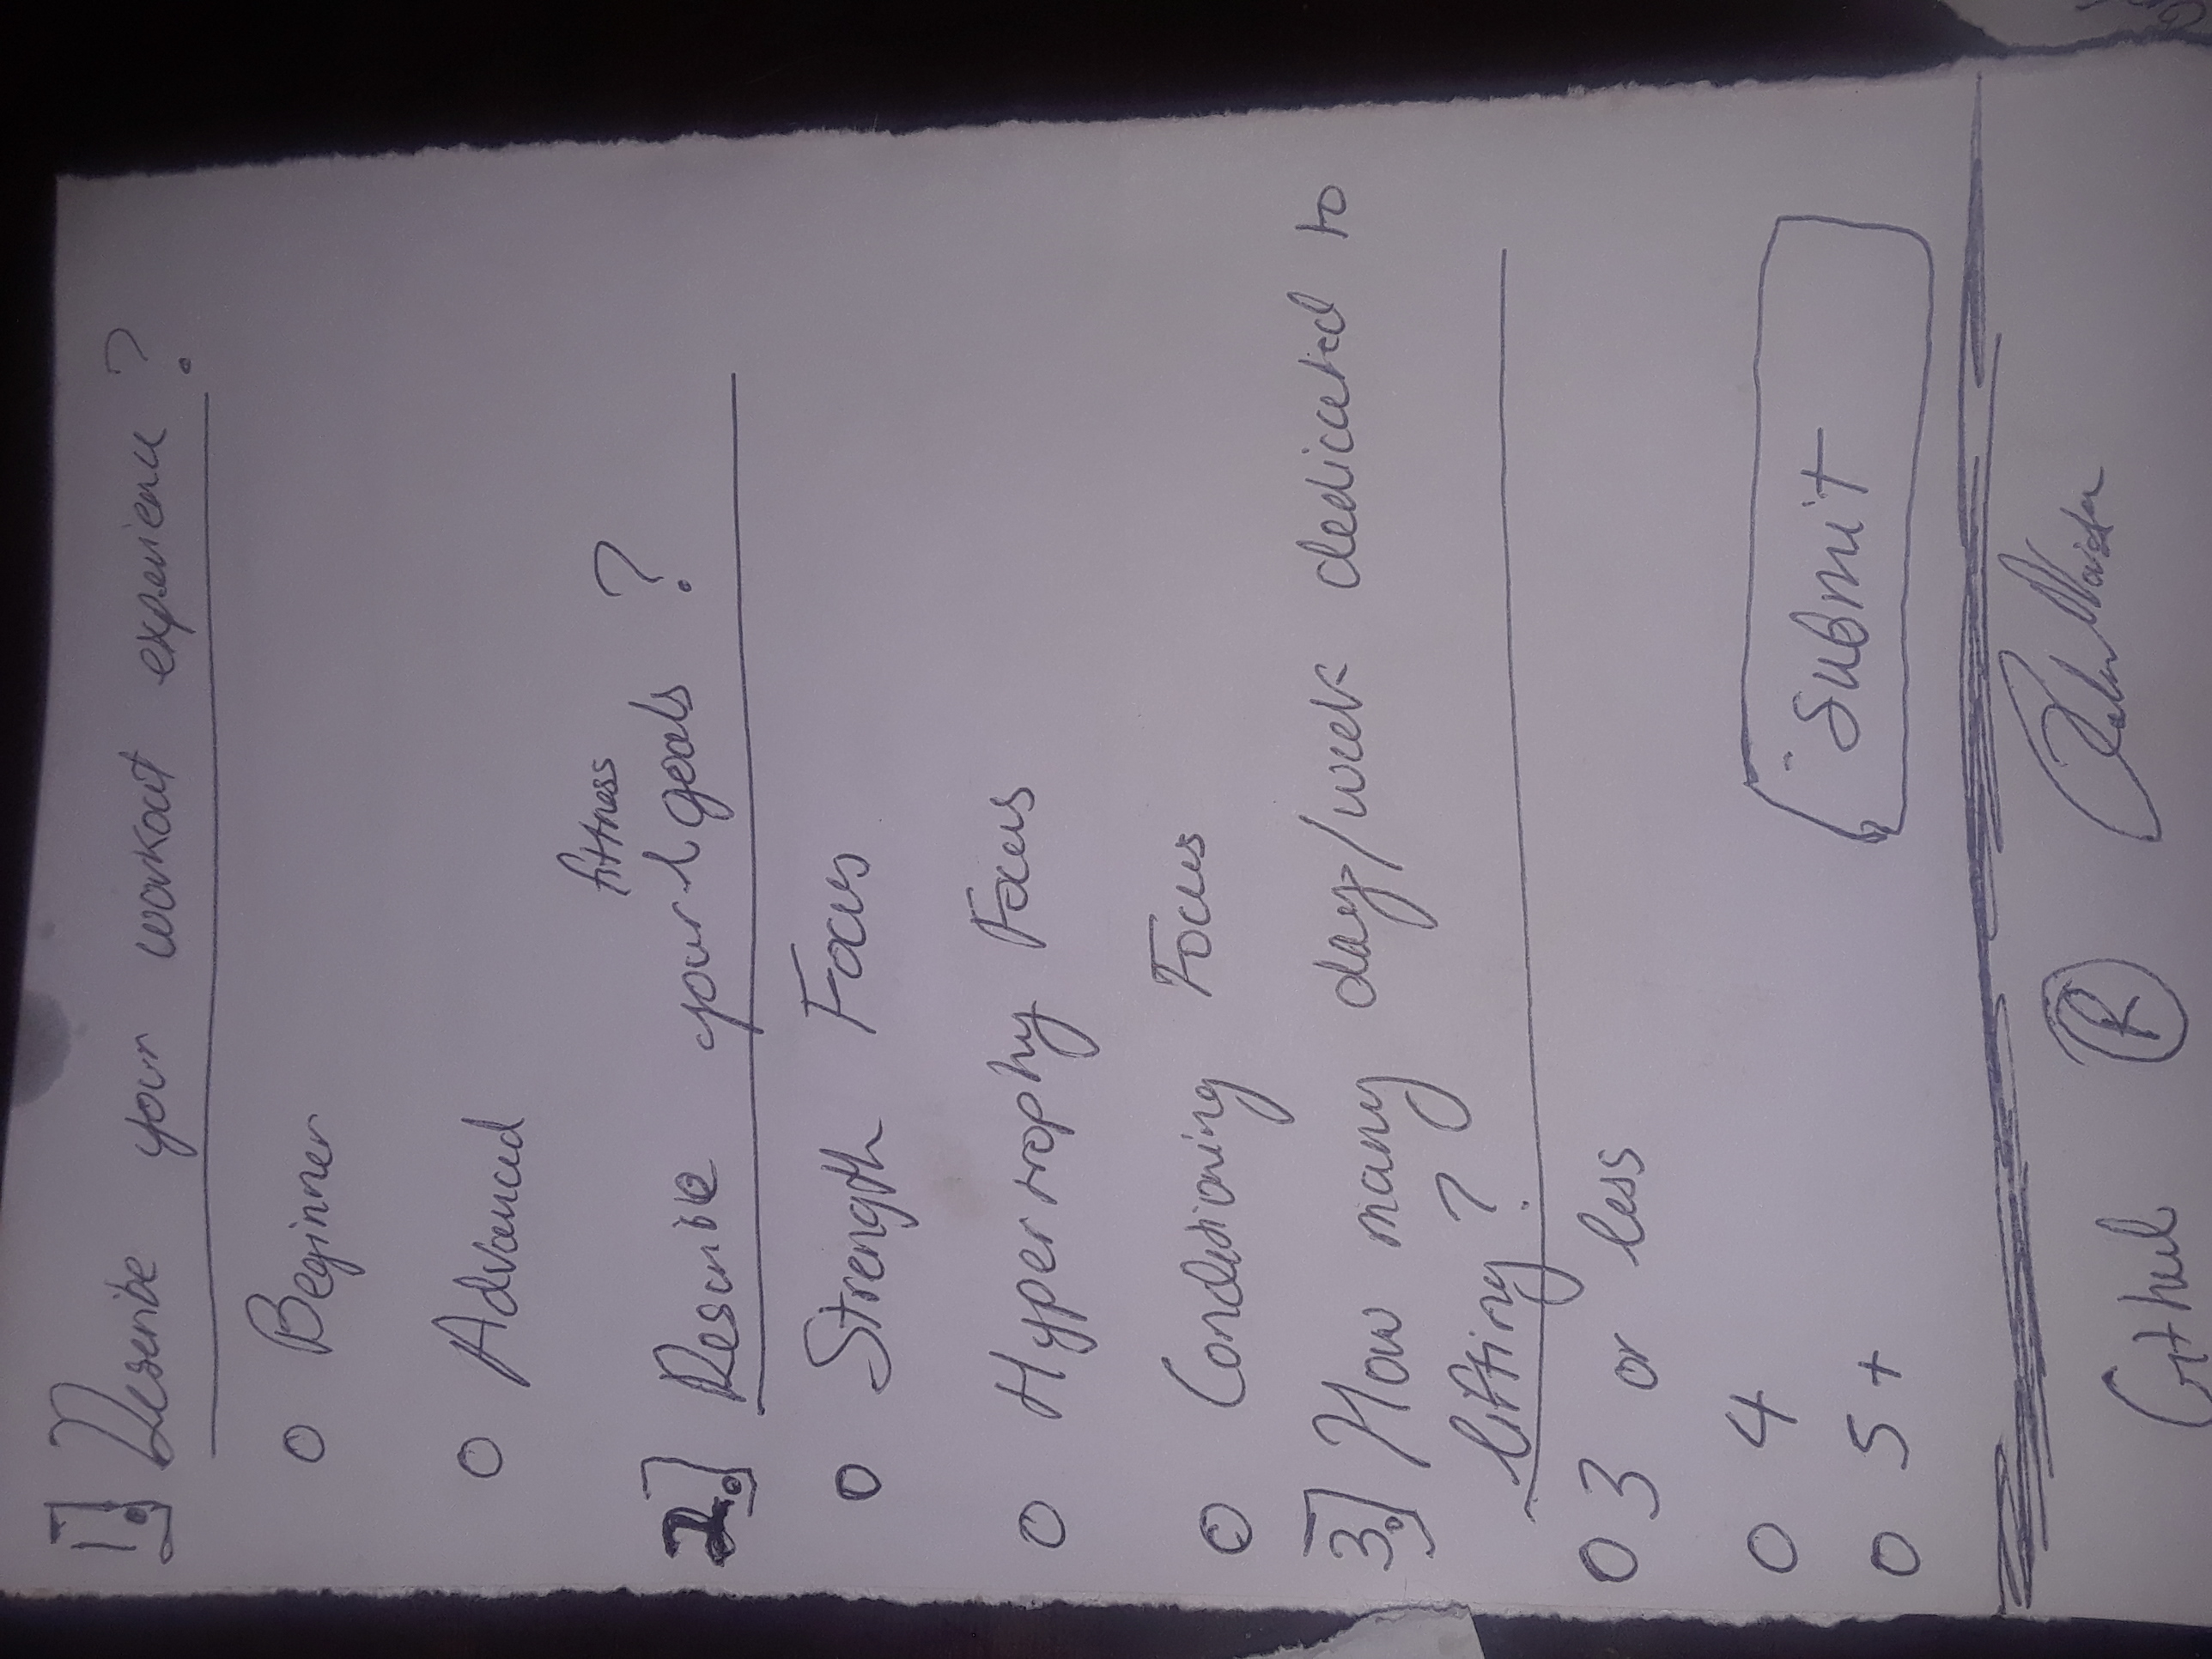 1.] Describe your workout experience?
O Beginner
O Advanced
fittness
2.] Describe your goals ?
O Strength Focus
O Hypertrophy Focus
O Conditioning Focus
3.] How many days/week dedicated to
lifting?
O 3 or less
O 4
O 5+
Submit
Github R